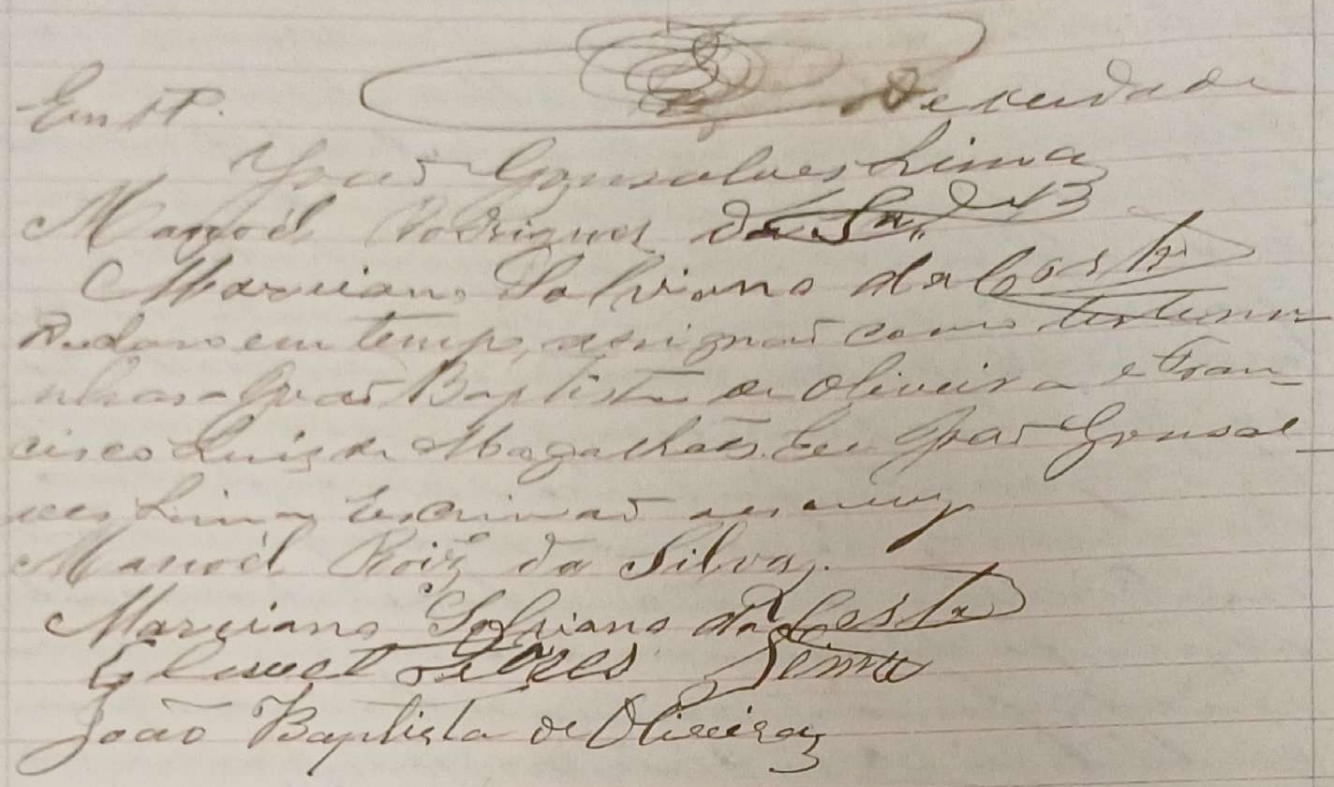 Em tt.º de verdade
João Gonsalves Lima
Manoél Rodrigues da Sª.
Marciano Salviano da Costa
Declaro em tempo, assignão como testemu-
nhas João Baptista de Oliveira e Fran-
cisco Luiz de Magalhães. Eu João Gonsal-
ves Lima, Escrivão escrevy
Manoél Roiz da Silva.
Marciano Salviano da Costa
Lima
João Baptista de Oliveira